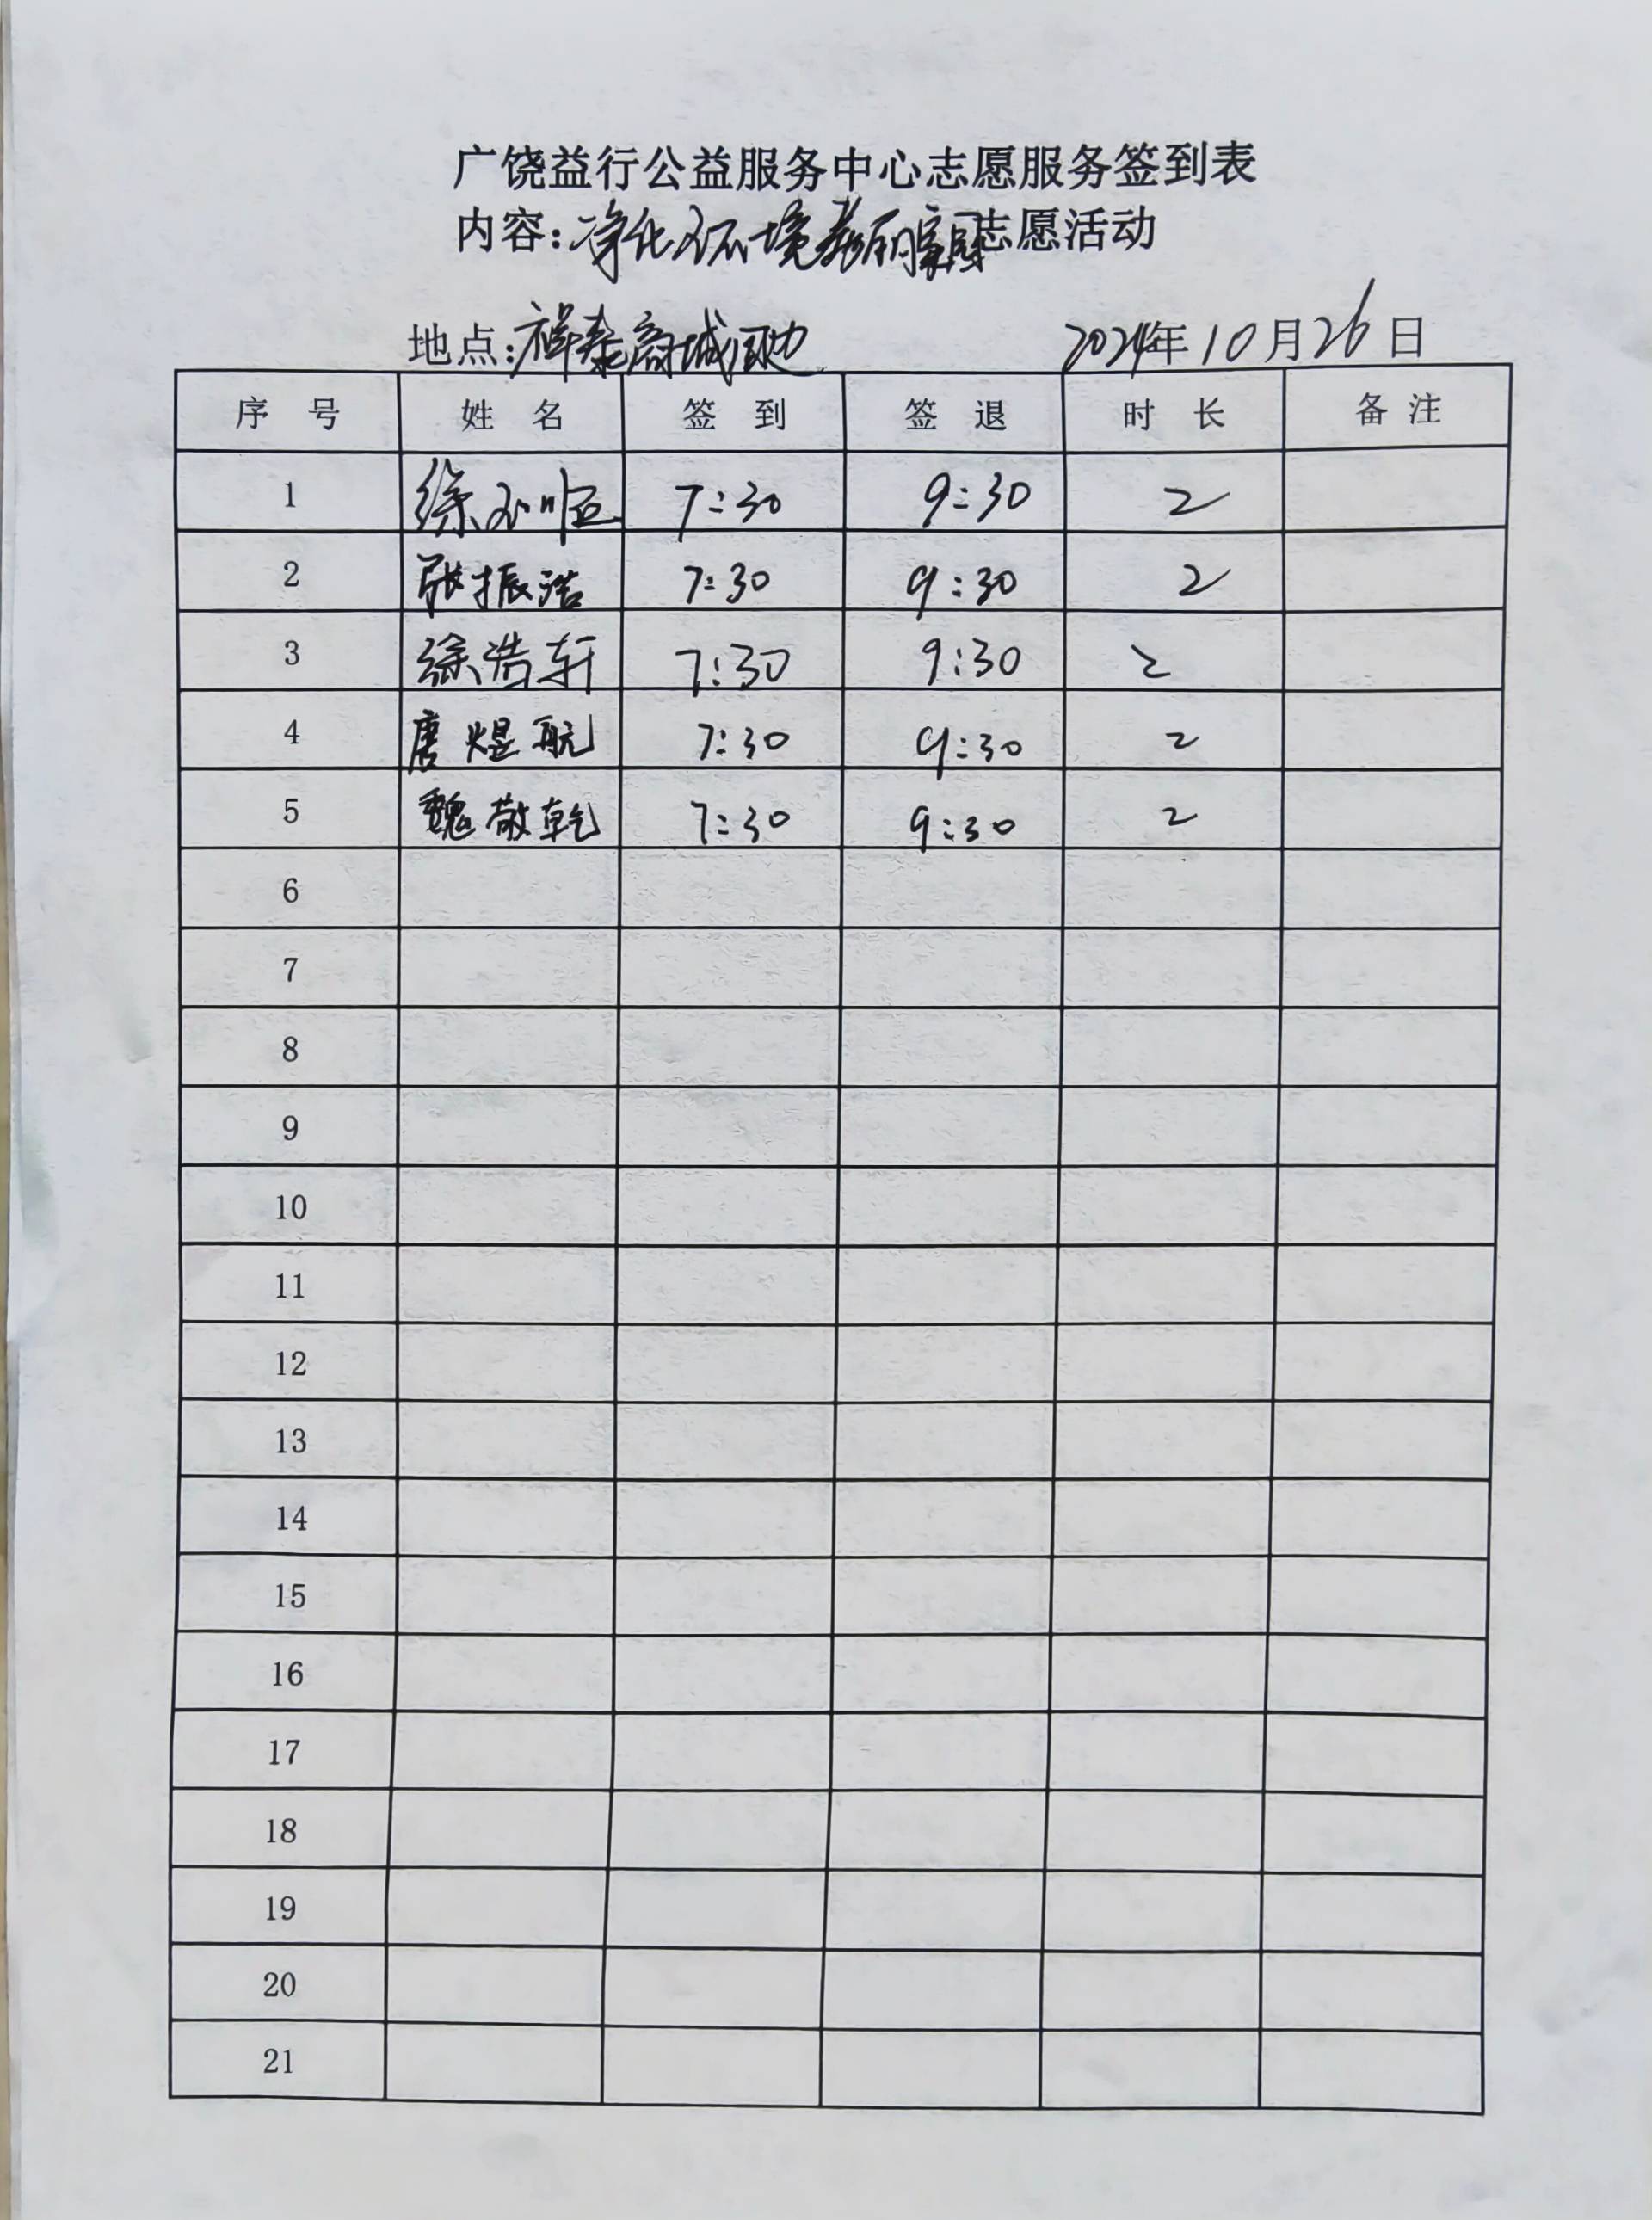 广饶益行公益服务中心志愿服务签到表
内容:净化环境美丽家园志愿活动
地点:祥泰商城周边 2024年10月26日
序 号 姓 名 签 到 签 退 时 长 备 注
1 徐 7:30 9:30 2
2 张振浩 7:30 9:30 2
3 徐浩轩 7:30 9:30 2
4 唐煜航 7:30 9:30 2
5 魏敬乾 7:30 9:30 2
6
7
8
9
10
11
12
13
14
15
16
17
18
19
20
21